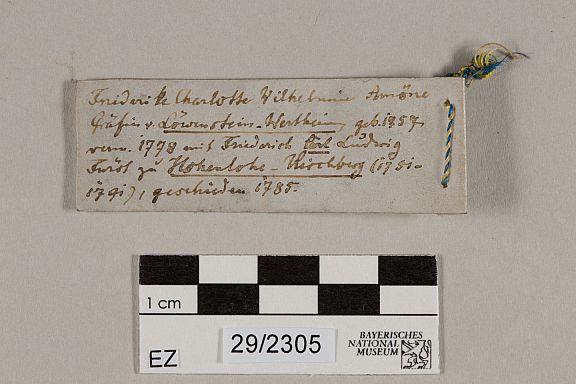 Friderike Charlotte Vilhelmine Amöne
Gräfin v. Löwenstein-Wertheim, geb. 1757,
verm. 1778 mit Friedrich Carl Ludwig
Fürst zu Hohenlohe-Kirchberg (1751-
1791), geschieden 1785.
1 cm
EZ
29/2305
BAYERISCHES
NATIONAL
MUSEUM